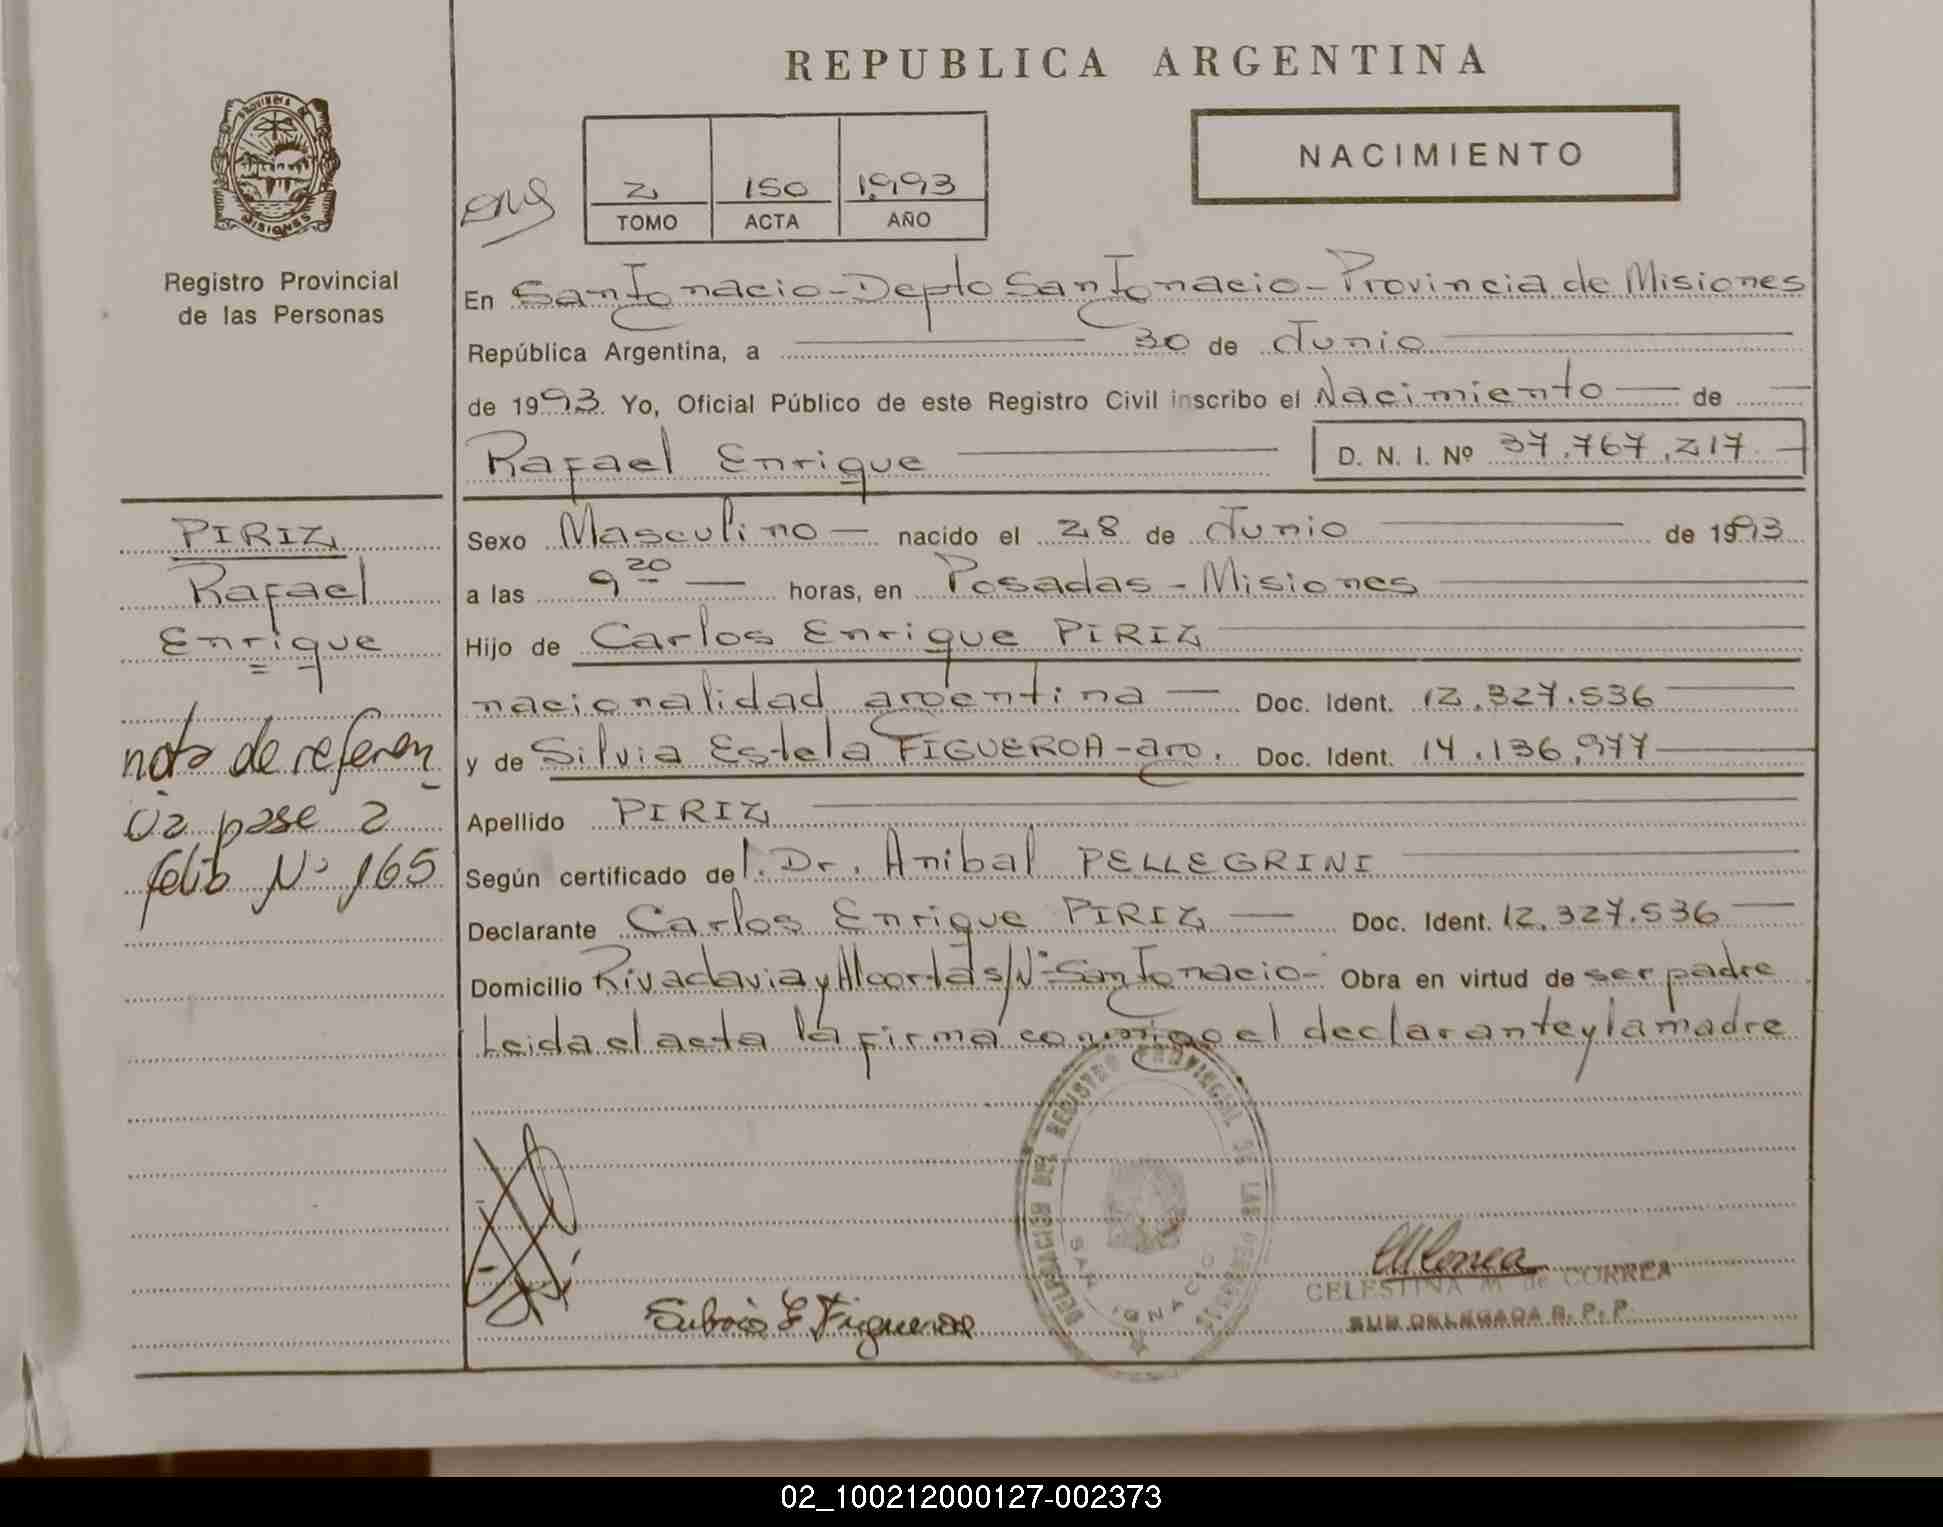 REPUBLICA ARGENTINA
NACIMIENTO
PROVINCIA DE
MISIONES
Registro Provincial
de las Personas
2 150 1.993
TOMO ACTA AÑO
En San Ignacio - Depto San Ignacio - Provincia de Misiones
República Argentina, a 30 de Junio
de 1993. Yo, Oficial Público de este Registro Civil inscribo el Nacimiento de
Rafael Enrique D. N. I. Nº 37.767.217
PIRIZ
Rafael
Enrique
nota de referen
cia pase a
folio Nº 165
Sexo Masculino nacido el 28 de Junio de 1993
a las 9 20 horas, en Posadas - Misiones
Hijo de Carlos Enrique PIRIZ
nacionalidad argentina Doc. Ident. 12.327.536
y de Silvia Estela FIGUEROA - arg. Doc. Ident. 14.136.977
Apellido PIRIZ
Según certificado del. Dr. Anibal PELLEGRINI
Declarante Carlos Enrique PIRIZ Doc. Ident. 12.327.536
Domicilio Rivadavia y Alcorta s/Nº - San Ignacio - Obra en virtud de ser padre
Leida el acta la firma conmigo el declarante y la madre
DELEGACION DEL REGISTRO PROVINCIAL DE LAS PERSONAS
SAN IGNACIO
Silvia E Figueroa
CELESTINA M. de CORREA
SUB DELEGADA R. P. P.
02_100212000127-002373